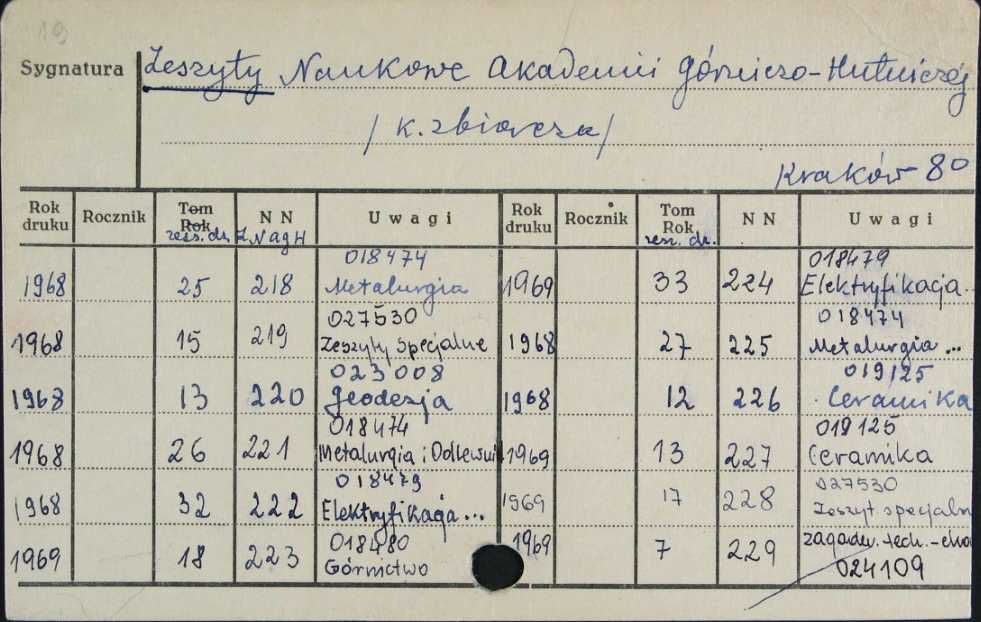 19
Sygnatura Zeszyty Naukowe Akademii Górniczo-Hutniczej
/k. zbiorcza/
Kraków 80
Rok druku Rocznik Tom Rok zesz. dr. N N Z N AGH Uwagi Rok druku Rocznik Tom Rok zesz. dr. N N Uwagi
018474 018479
1968 25 218 Metalurgia 1969 33 224 Elektryfikacja..
027530 018474
1968 15 219 Zeszyty Specjalne 1968 27 225 Metalurgia ...
023008 019125
1968 13 220 Geodezja 1968 12 226 Ceramika
018474 019125
1968 26 221 Metalurgia i Odlewni 1969 13 227 Ceramika
018479 027530
1968 32 222 Elektryfikacja ... 1969 17 228 Zeszyt specjaln
018480 zagadn. tech. - eko
1969 18 223 Górnictwo 1969 7 229 024109